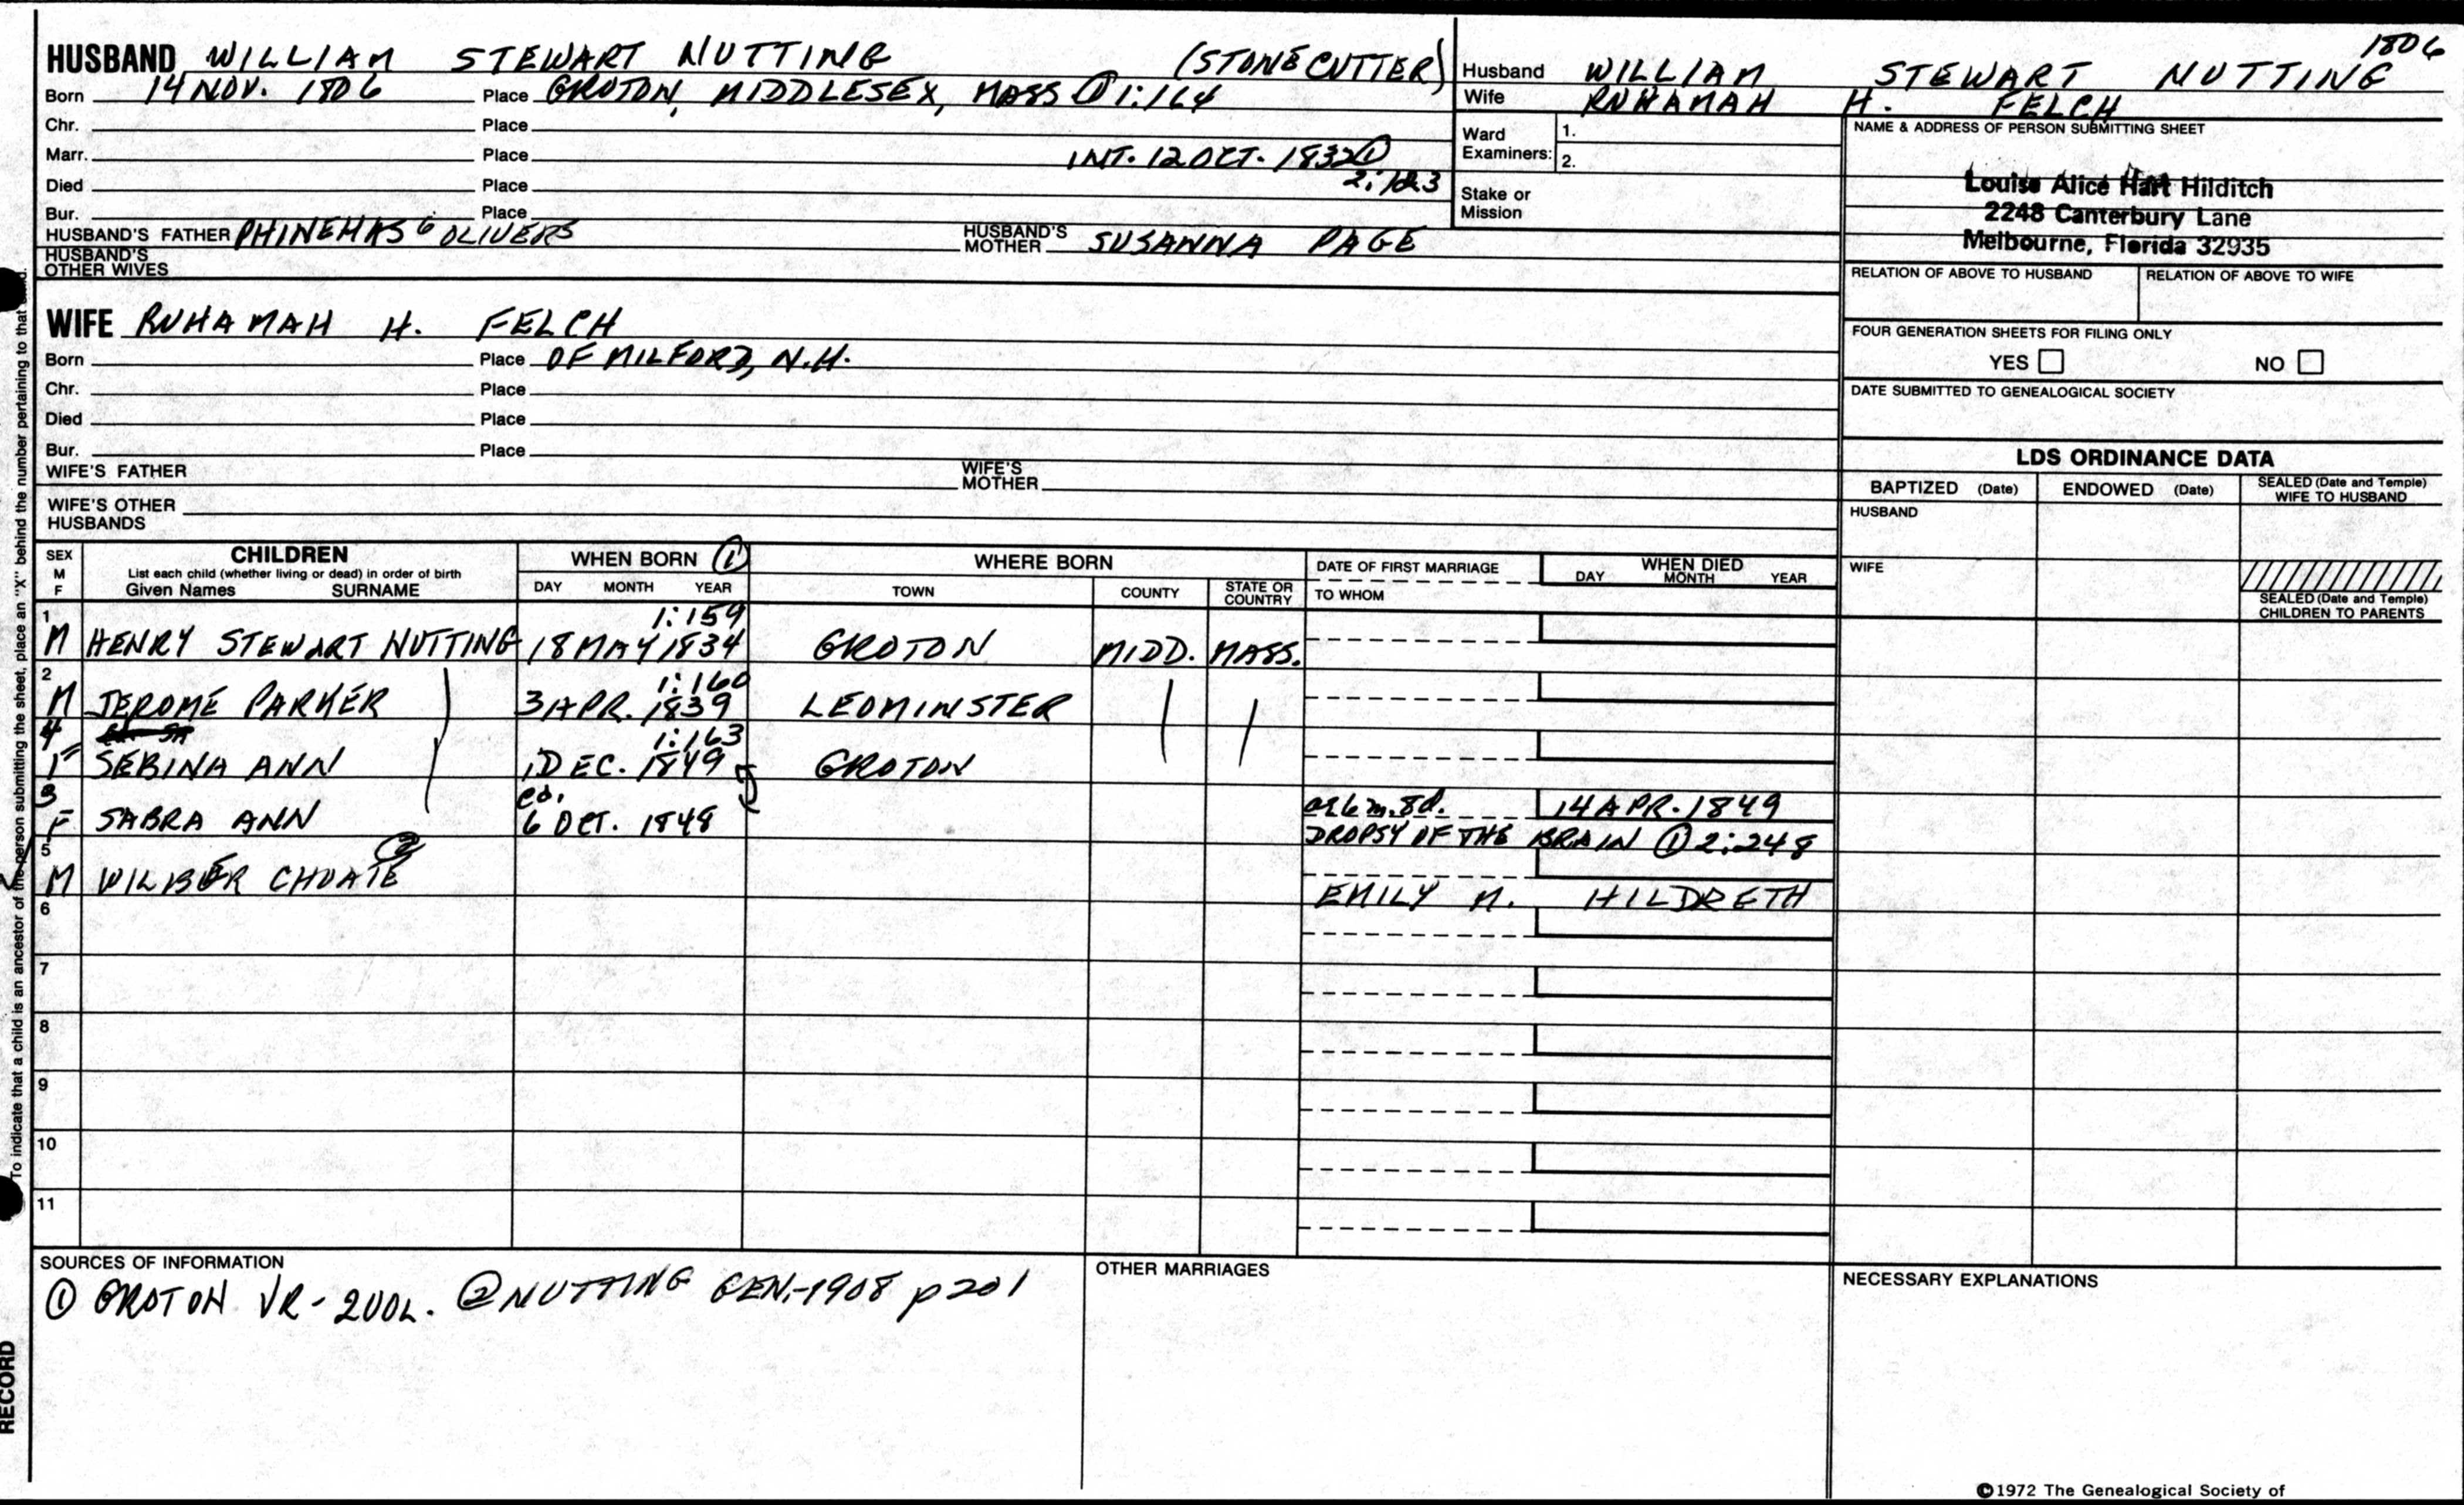 1806
HUSBAND WILLIAM STEWART NUTTING (STONECUTTER)
Born 14 NOV. 1806 Place GROTON, MIDDLESEX, MASS ① 1:164
Chr. Place
Marr. Place INT. 12 OCT. 1832 ①
Died Place 2:123
Bur. Place
HUSBAND'S FATHER PHINEHAS 6 OLIVER5 HUSBAND'S MOTHER SUSANNA PAGE
HUSBAND'S OTHER WIVES
Husband WILLIAM STEWART NUTTING
Wife RUHAMAH H. FELCH
Ward Examiners: 1.
2.
Stake or Mission
NAME & ADDRESS OF PERSON SUBMITTING SHEET
Louise Alice Hart Hilditch
2248 Canterbury Lane
Melbourne, Florida 32935
RELATION OF ABOVE TO HUSBAND RELATION OF ABOVE TO WIFE
FOUR GENERATION SHEETS FOR FILING ONLY
YES NO
DATE SUBMITTED TO GENEALOGICAL SOCIETY
WIFE RUHAMAH H. FELCH
Born Place OF MILFORD, N.H.
Chr. Place
Died Place
Bur. Place
WIFE'S FATHER WIFE'S MOTHER
WIFE'S OTHER HUSBANDS
LDS ORDINANCE DATA
BAPTIZED (Date) ENDOWED (Date) SEALED (Date and Temple) WIFE TO HUSBAND
HUSBAND
WIFE
SEALED (Date and Temple) CHILDREN TO PARENTS
SEX M F
CHILDREN
List each child (whether living or dead) in order of birth
Given Names SURNAME
WHEN BORN ①
DAY MONTH YEAR
WHERE BORN
TOWN COUNTY STATE OR COUNTRY
DATE OF FIRST MARRIAGE
TO WHOM
WHEN DIED
DAY MONTH YEAR
1 1:159
M HENRY STEWART NUTTING 18 MAY 1834 GROTON MIDD. MASS.
2 1:160
M JEROME PARKER 3 APR. 1839 LEOMINSTER
4 1:163
F SEBINA ANN 1 DEC. 1849 GROTON
3 ca.
F SABRA ANN 6 OCT. 1848 ae 6m. 8d. 14 APR. 1849
DROPSY OF THE BRAIN ① 2:248
5 ②
M WILBER CHOATE EMILY M. HILDRETH
6
7
8
9
10
11
SOURCES OF INFORMATION
① GROTON VR- 2VOL. ② NUTTING GEN.-1908 p201
OTHER MARRIAGES
NECESSARY EXPLANATIONS
To indicate that a child is an ancestor of the person submitting the sheet, place an "X" behind the number pertaining to that
RECORD
©1972 The Genealogical Society of